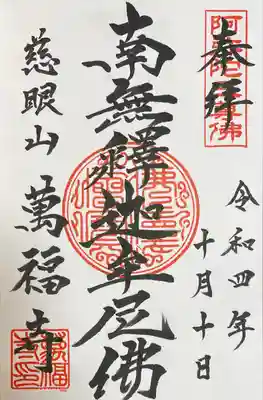 奉拝
令和四年
十月十日
南無釋迦牟尼佛
慈眼山 萬福寺
萬福
寺印